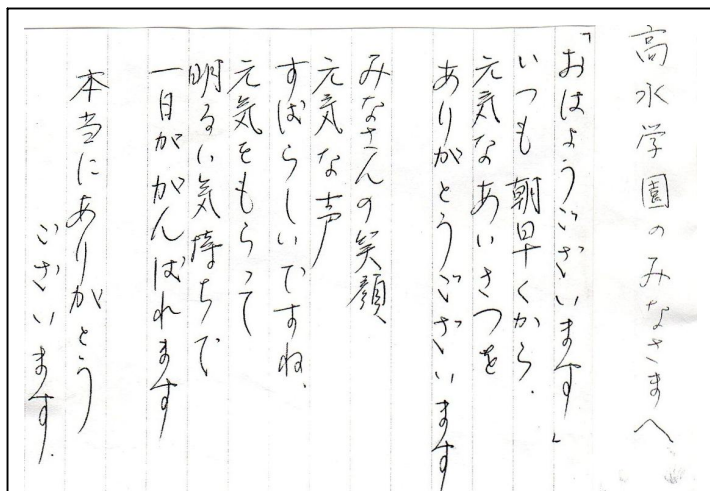 高水学園のみなさまへ
「おはようございます」
いつも朝早くから、
元気なあいさつを
ありがとうございます
みなさんの笑顔
元気な声
すばらしいですね、
元気をもらって
明るい気持ちで
一日ががんばれます
本当にありがとう
ございます。